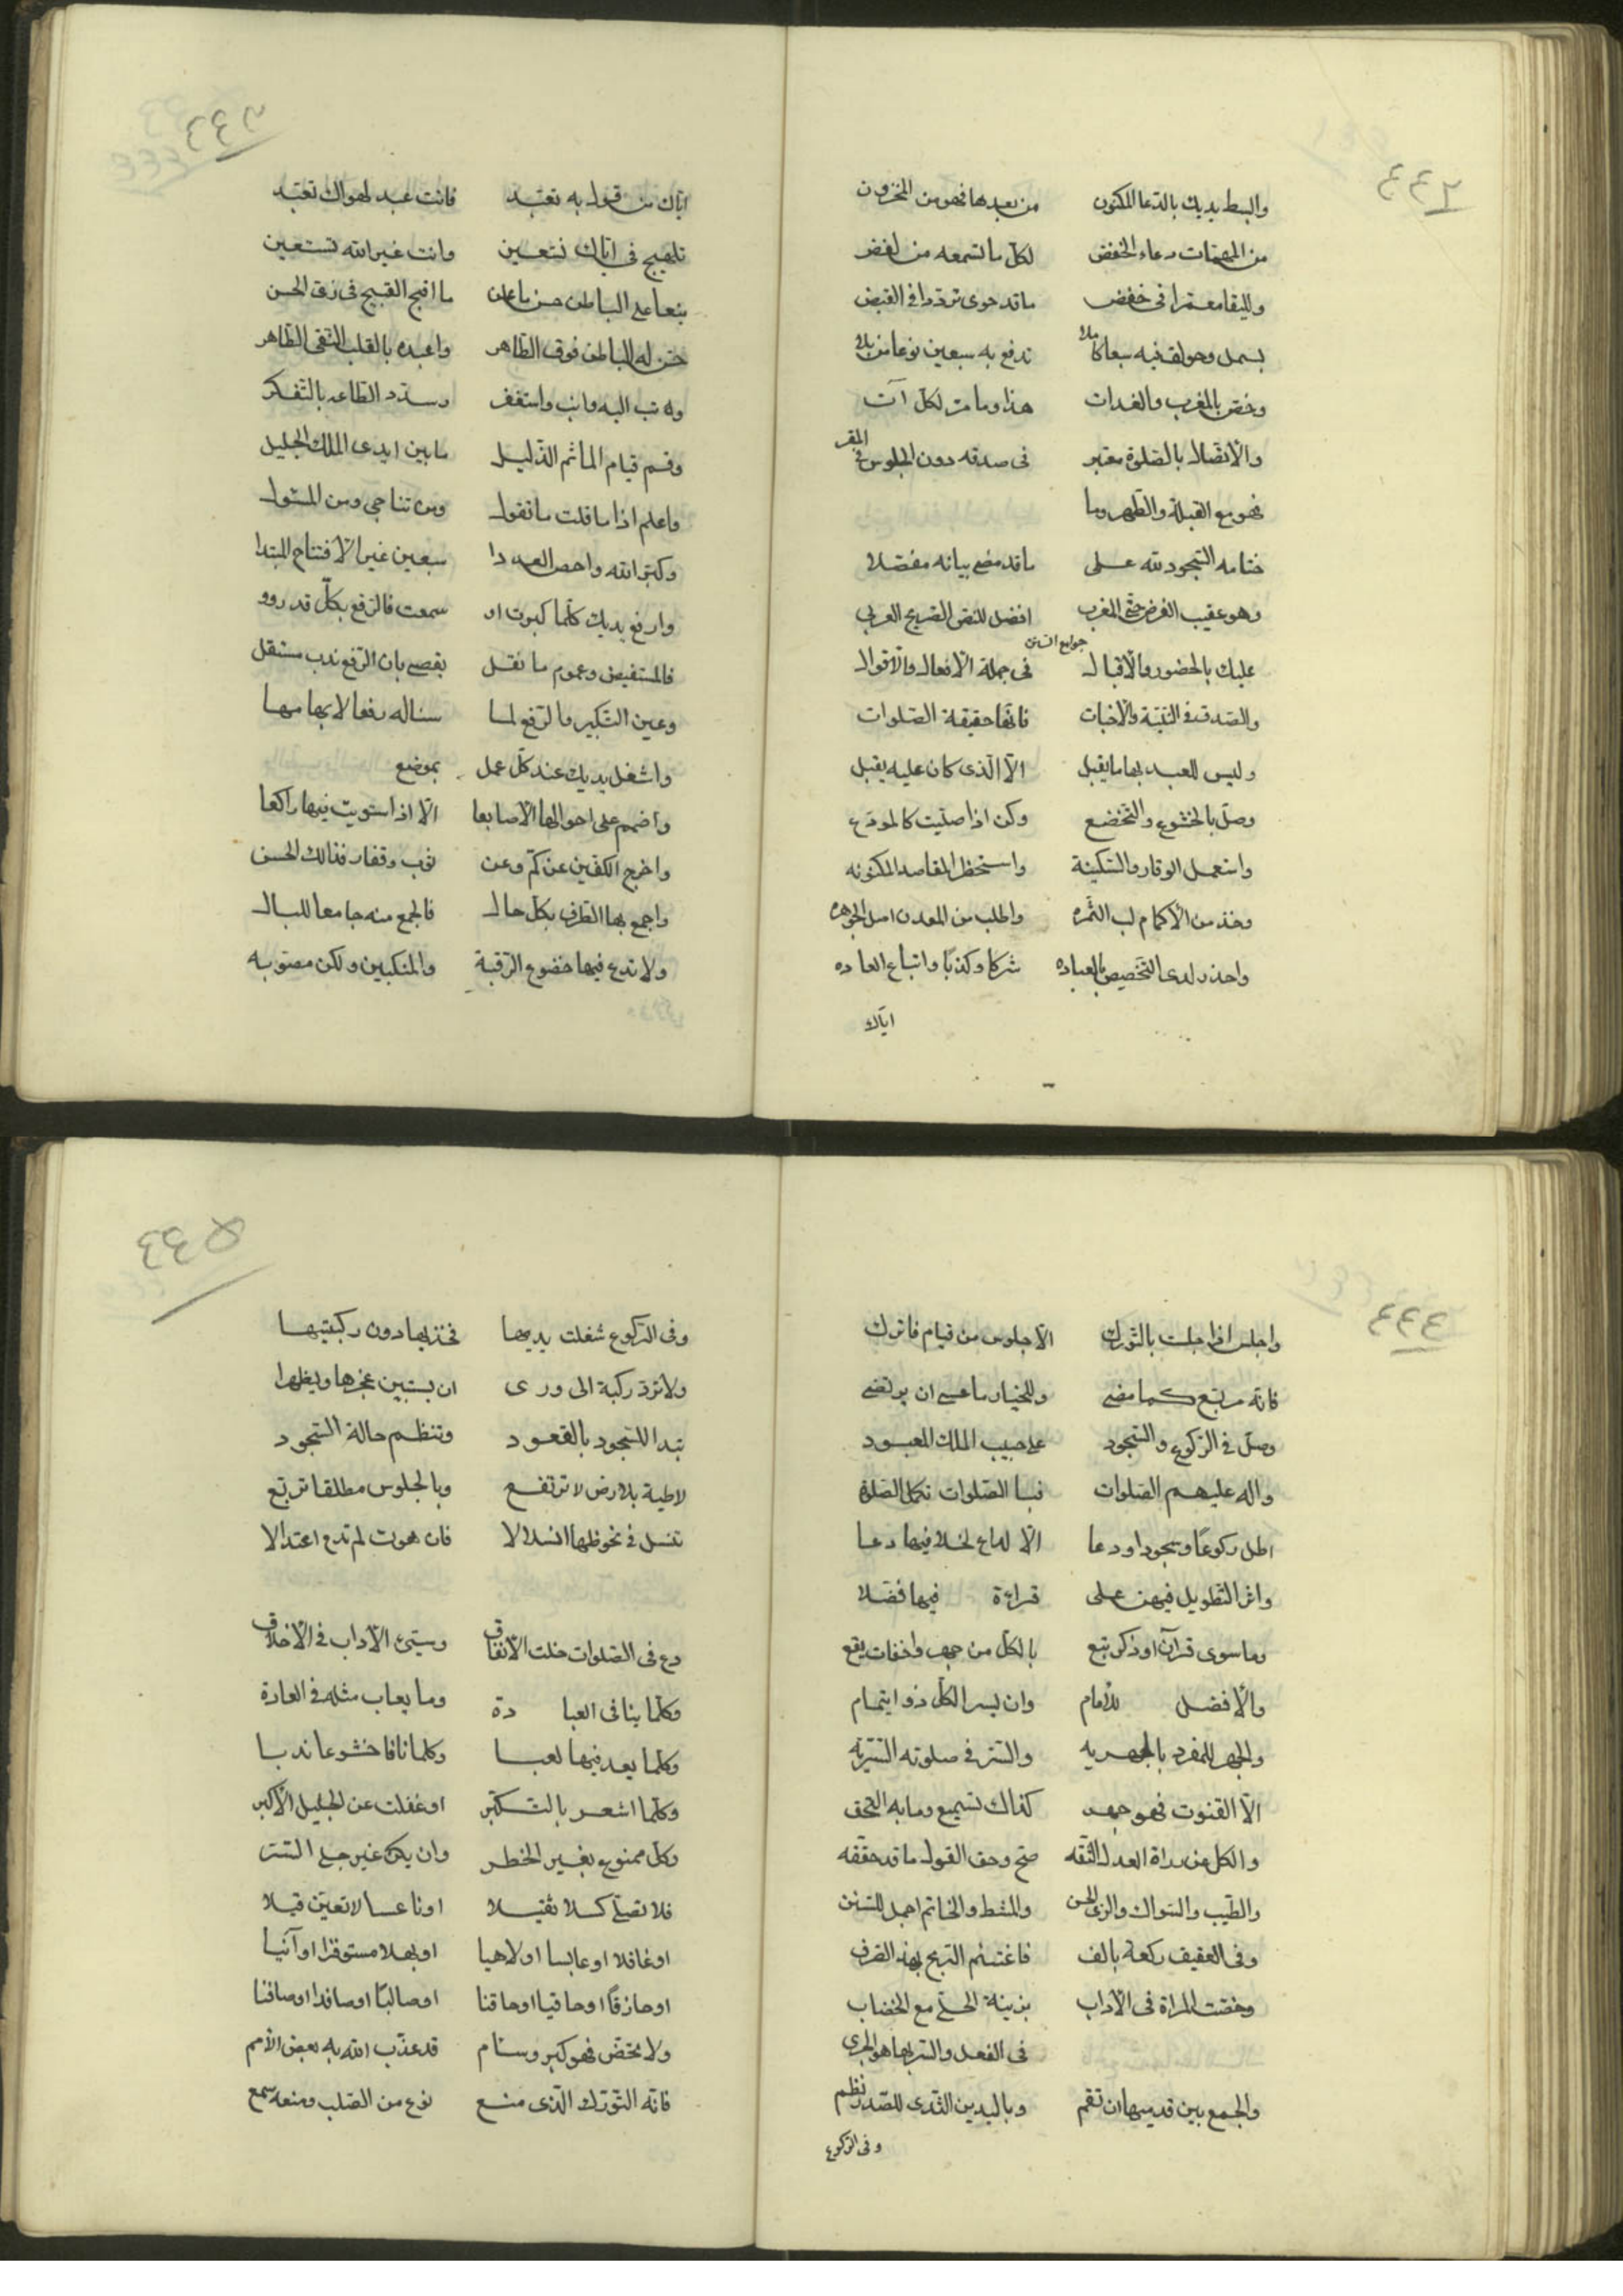 ٤٤٢
وابسط يديك بالدعا المكنون من بعدها فهو من المخزون
من المهمات دعاء الخفض لكل ما تسمعه من لفض
وليقا معتمرا في خفض ما قد حوى تردد في القبض
بسمل وحولق فيه سبعا كاملا تدفع به سبعين نوعا من بلا
وخص بالمغرب والغدات هذا وما مر لكل آت
والاتصال بالصلوة معتبر في صدقه دون الجلوس في المقر
نحو مع القبلة والطهر وما
ختامه السجود لله على ما قد مضى بيانه مفصلا
وهو عقيب الفرض حتى المغرب افضل للنص الصريح العربي
جوامع السنن
عليك بالحضور والاقبال في جملة الافعال والاقوال
والصدق في النية والاخبات فانها حقيقة الصلوات
وليس للعبد بها ما يقبل الا الذى كان عليه يقبل
وصل بالخشوع والتخضع وكن اذا صليت كالمودع
واستعمل الوقار والسكينة واستحظر المقاصد المكنونه
وخذ من الاكمام لب الثمره واطلب من المعدن اصل الجوهره
واحذر لدى التخصيص بالعباده شركا وكذبا واتباع العاده
اياك
٤٤٣
اياك من قول به تفند فانت عبد لهواك تعبد
تلهيج في اياك نستعين وانت غير الله تستعين
ينعا على الباطن حسن ما علن ما اقبح القبيح في زى الحسن
حسن له الباطن فوق الظاهر واعبده بالقلب التقى الطاهر
وله تب اليه وانب واستغفر وسدد الطاعه بالتفكر
وقم قيام الماثم الذليل ما بين ايدى الملك الجليل
واعلم اذا ما قلت ما تقول ومن تناجى ومن المسئول
وكبر الله واحص العددا سبعين غير الافتتاح المبتدا
وارفع يديك كلما كبرت او سمعت فالرفع بكل قد رووا
فالمستفيض وعموم ما نقل يقضى بان الرفع ندب مستقل
وعين التكبير والرفع لما سناله رفعا لابهامهما
واشغل يديك عند كل عمل بموضع
واضمم على احوالها الاصابعا الا اذا استويت فيها راكعا
واخرج الكفين عن كم وعن ثوب وقفار فذالك الحسن
واجمع بها الطرف بكل حال فالجمع منه جامعا للبال
ولا تدع فيها خضوع الرقبة والمنكبين ولكن مصوبه
٤٤٤
واجلس اذا جلست بالتورك الا جلوس من قيام فاترك
فانه مربع كما مضى وللخيار ما عسى ان يرتضى
وصل في الركوع والسجود على حبيب الملك المعبود
واله عليهم الصلوات فبا الصلوات تكمل الصلاة
اطل ركوعا وسجودا ودعا الا لداع لخلا فيها دعا
واثر التطويل فيهن على قراءة فيها فضلا
وما سوى قرآن او ذكر تبع بالكل من جهر واخفات يقع
والافضل للامام وان يسر الكل ذو ايتمام
والجهر للمفرد بالجهريه والستر في صلوته السريه
الا القنوت فهو جهر كذاك تسميع وما به التحق
والكل من رواة العدل الثقه صح وحق القول ما قد حققه
والطيب والسواك والزى الحسن والمشط والخاتم اجمل للسنن
وفى العقيف ركعة بالف فاغتنم الربح بهذ الصرف
وخصت المراة في الاداب بزينة الحلى مع الخضاب
في الفعل والستر بها هو الحرى
والجمع بين قدميها ان تقم وباليدين الثدى للصدر نظم
وفى الركوع
٤٤٥
وفى الركوع شغلت يديها فخذيها دون ركبتيها
ولا ترد ركبة الى ورى ان يستبين عجزها ويظهرا
تبدا للسجود بالقعود وتنظم حالة السجود
لاطية بلارض لا ترتفع وبالجلوس مطلقا تربع
تنسل في نحوظها انسلالا فان هوت لم تدع اعتدالا
دع في الصلوات خلت الانفاق وسيئ الاداب في الاخلاق
وكلما ينافى العبا دة وما يعاب مثله في العادة
وكلما يعد فيها لعبا وكلما نافا خشوعا ندبا
وكلما اشعر بالتكبر او غفلت عن الجليل الاكبر
وكل ممنوع بغير الخطر وان يكن غير جلى الستر
فلا تصلى كسلا ثقيلا او ناعسا لا تعين قيلا
او غافلا او عابسا او لاهيا او بهلا مستوفزا او آنيا
او حازقا او حاقبا او حاقنا او صالبا او صافدا او صافنا
ولا تخض فهو كبر وسئام قد عذب الله به بعض الامم
فانه التورك الذى منع نوع من الصلب ومنعه سمع